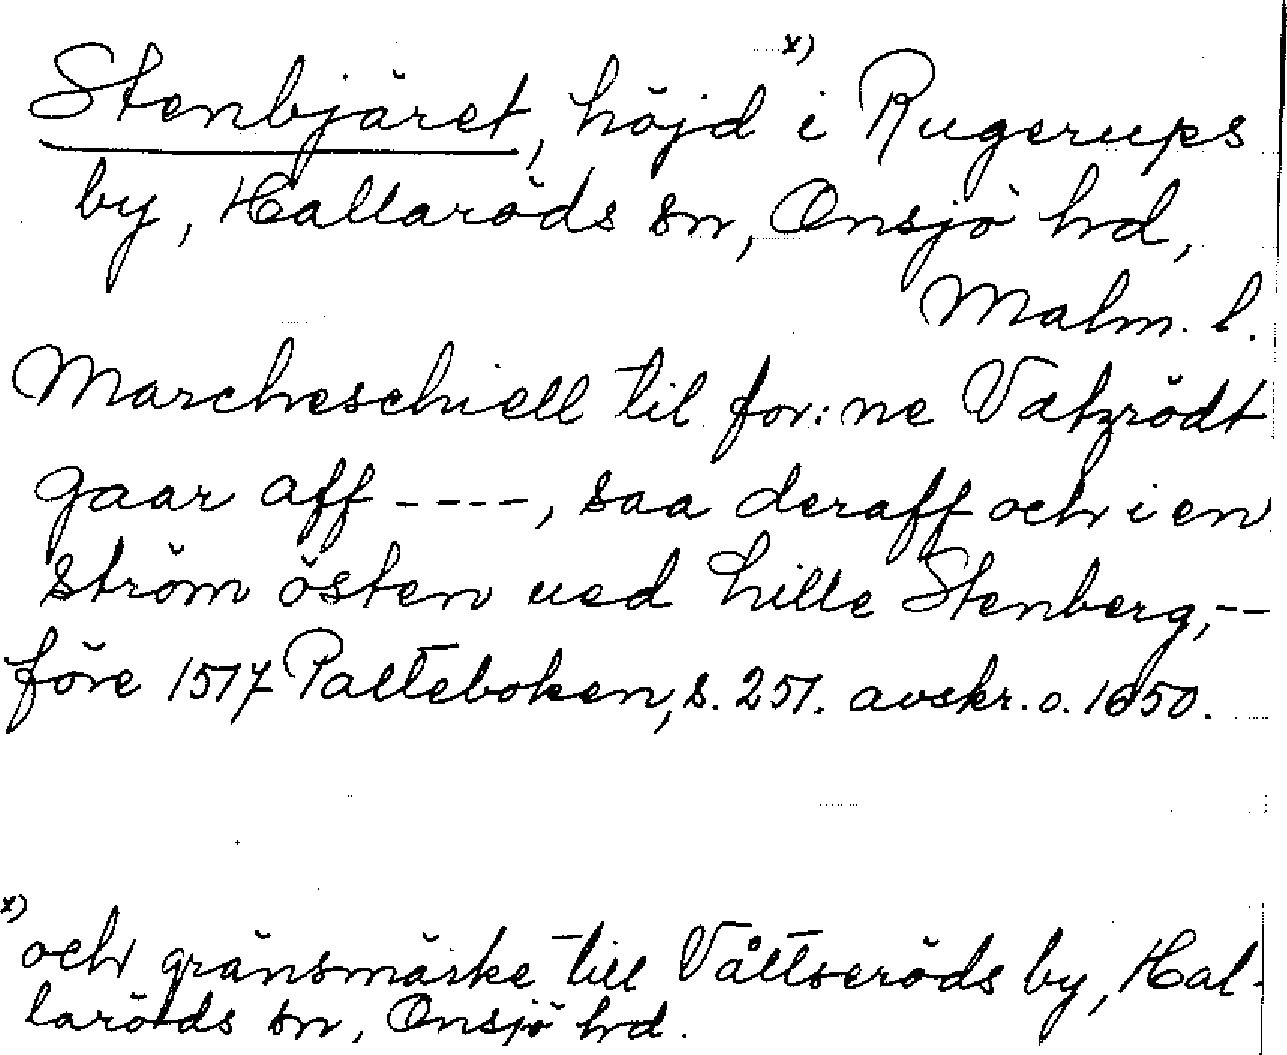 Stenbjäret, höjd x) i Rugerups
by, Hallaröds sn, Onsjö hd,
Malm. l.
Marcheschiell til for:ne Vatzrödt
gaar aff ----, saa deraff och i en
ström östen ued hille Stenberg, --
före 1517 Palteboken, s. 251. avskr. o. 1650.
x) och gränsmärke till Våltseröds by, Hal-
laröds sn, Onsjö hd.